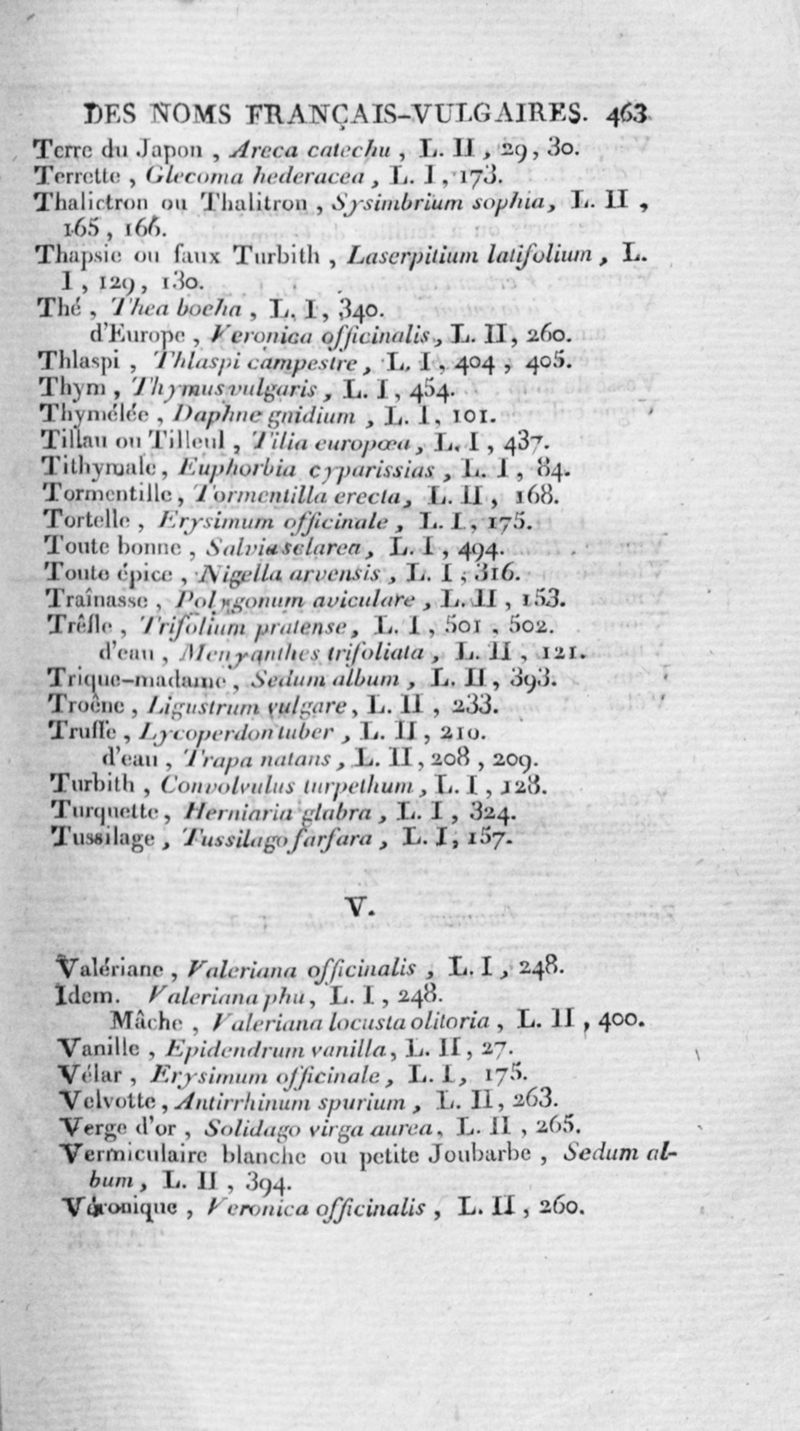 DES NOMS FRANÇAIS-VULGAIRES. 463
Terre du Japon , Areca catechu , L. II , 29, 30.
Terrette , Glecoma hederacea , L. I , 173.
Thalictron ou Thalitron , Sysimbrium sophia, L. II ,
165 , 166.
Thapsie ou faux Turbith , Laserpitium latifolium , L.
I , 129, 130.
Thé , Thea boeha , L. I , 340.
d'Europe , Veronica officinalis , L. II, 260.
Thlaspi , Thlaspi campestre , L. I , 404 , 405.
Thym , Thymus vulgaris , L. I , 454.
Thymélée , Daphne gnidium , L. I, 101.
Tillau ou Tilleul , Tilia europœa , L. I , 437.
Tithymale, Euphorbia cyparissias , L. I , 84.
Tormentille, Tormentilla erecta, L. II , 168.
Tortelle , Erysimum officinale , L. I , 175.
Toute bonne , Salvia sclarea , L. I , 494.
Toute épice , Nigella arvensis , L. I , 316.
Traînasse , Polygonum aviculare , L. II , 153.
Trêfle , Trifolium pratense, L. I , 501 , 502.
d'eau , Menyanthes trifoliata , L. II , 121.
Trique-madame , Sedum album , L. II , 393.
Troêne , Ligustrum vulgare, L. II , 233.
Truffe , Lycoperdon tuber , L. II , 210.
d'eau , Trapa natans , L. II , 208 , 209.
Turbith , Convolvulus turpethum , L. I , 128.
Turquette , Herniaria glabra , L. I , 324.
Tussilage , Tussilago farfara , L. I, 157.
V.
Valériane , Valeriana officinalis , L. I , 248.
Idem. Valeriana phu, L. I , 248.
Mâche , Valeriana locusta olitoria , L. II , 400.
Vanille , Epidendrum vanilla, L. II, 27.
Vélar , Erysimum officinale , L. I , 175.
Velvotte , Antirrhinum spurium , L. II, 263.
Verge d'or , Solidago virga aurea, L. II , 265.
Vermiculaire blanche ou petite Joubarbe , Sedum al-
bum , L. II , 394.
Véronique , Veronica officinalis , L. II , 260.